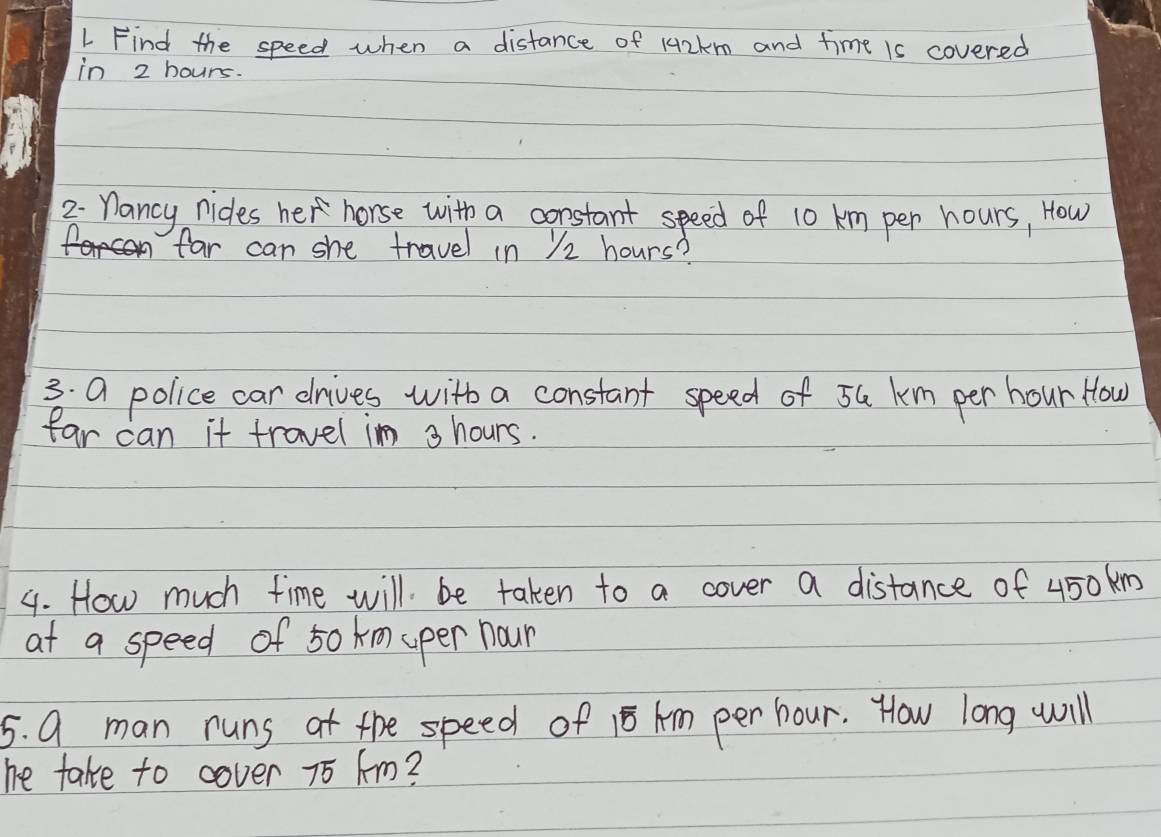 1. Find the speed when a distance of 142km and time is covered
in 2 hours.
2- Nancy rides her horse with a constant speed of 10 km per hours, How
farcan far can she travel in 1/2 hours?
3. A police car drives with a constant speed of km per hour How
far can it travel im 3 hours.
4. How much time will be taken to a cover a distance of 450km
at a speed of 50 km per hour
5. A man runs at the speed of 15 km per hour. How long will
he take to cover 75 km?